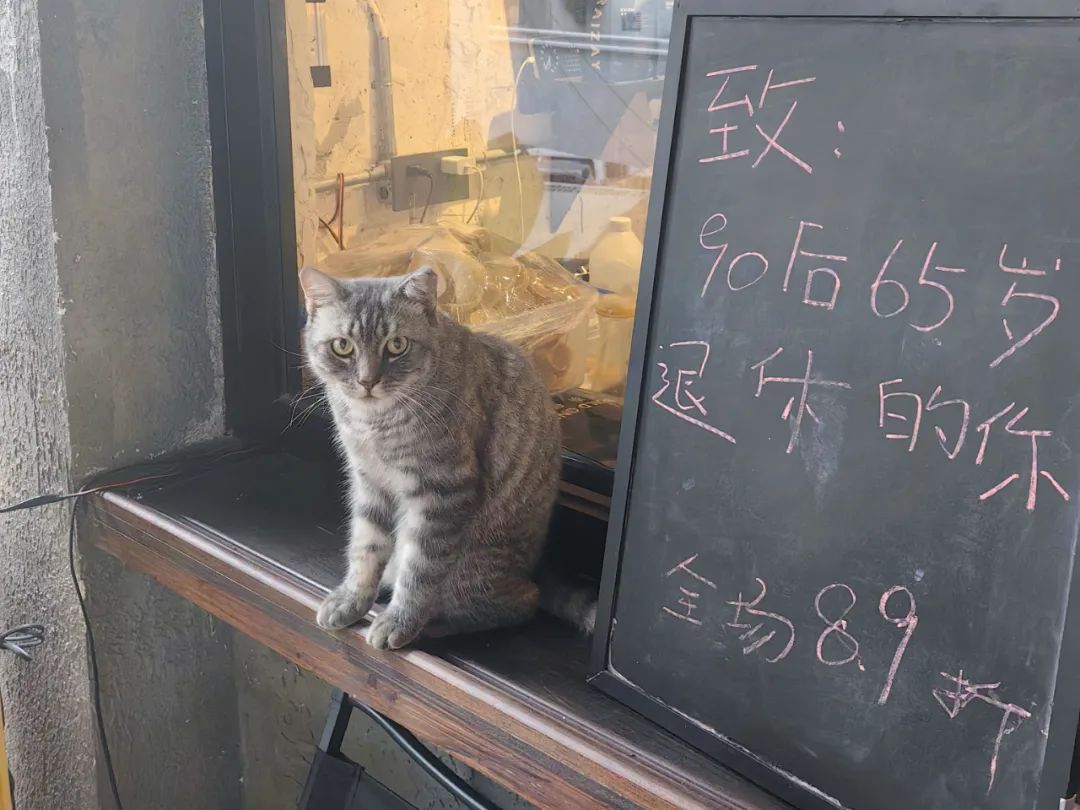 致:
90后65岁
退休的你
全场8.9折